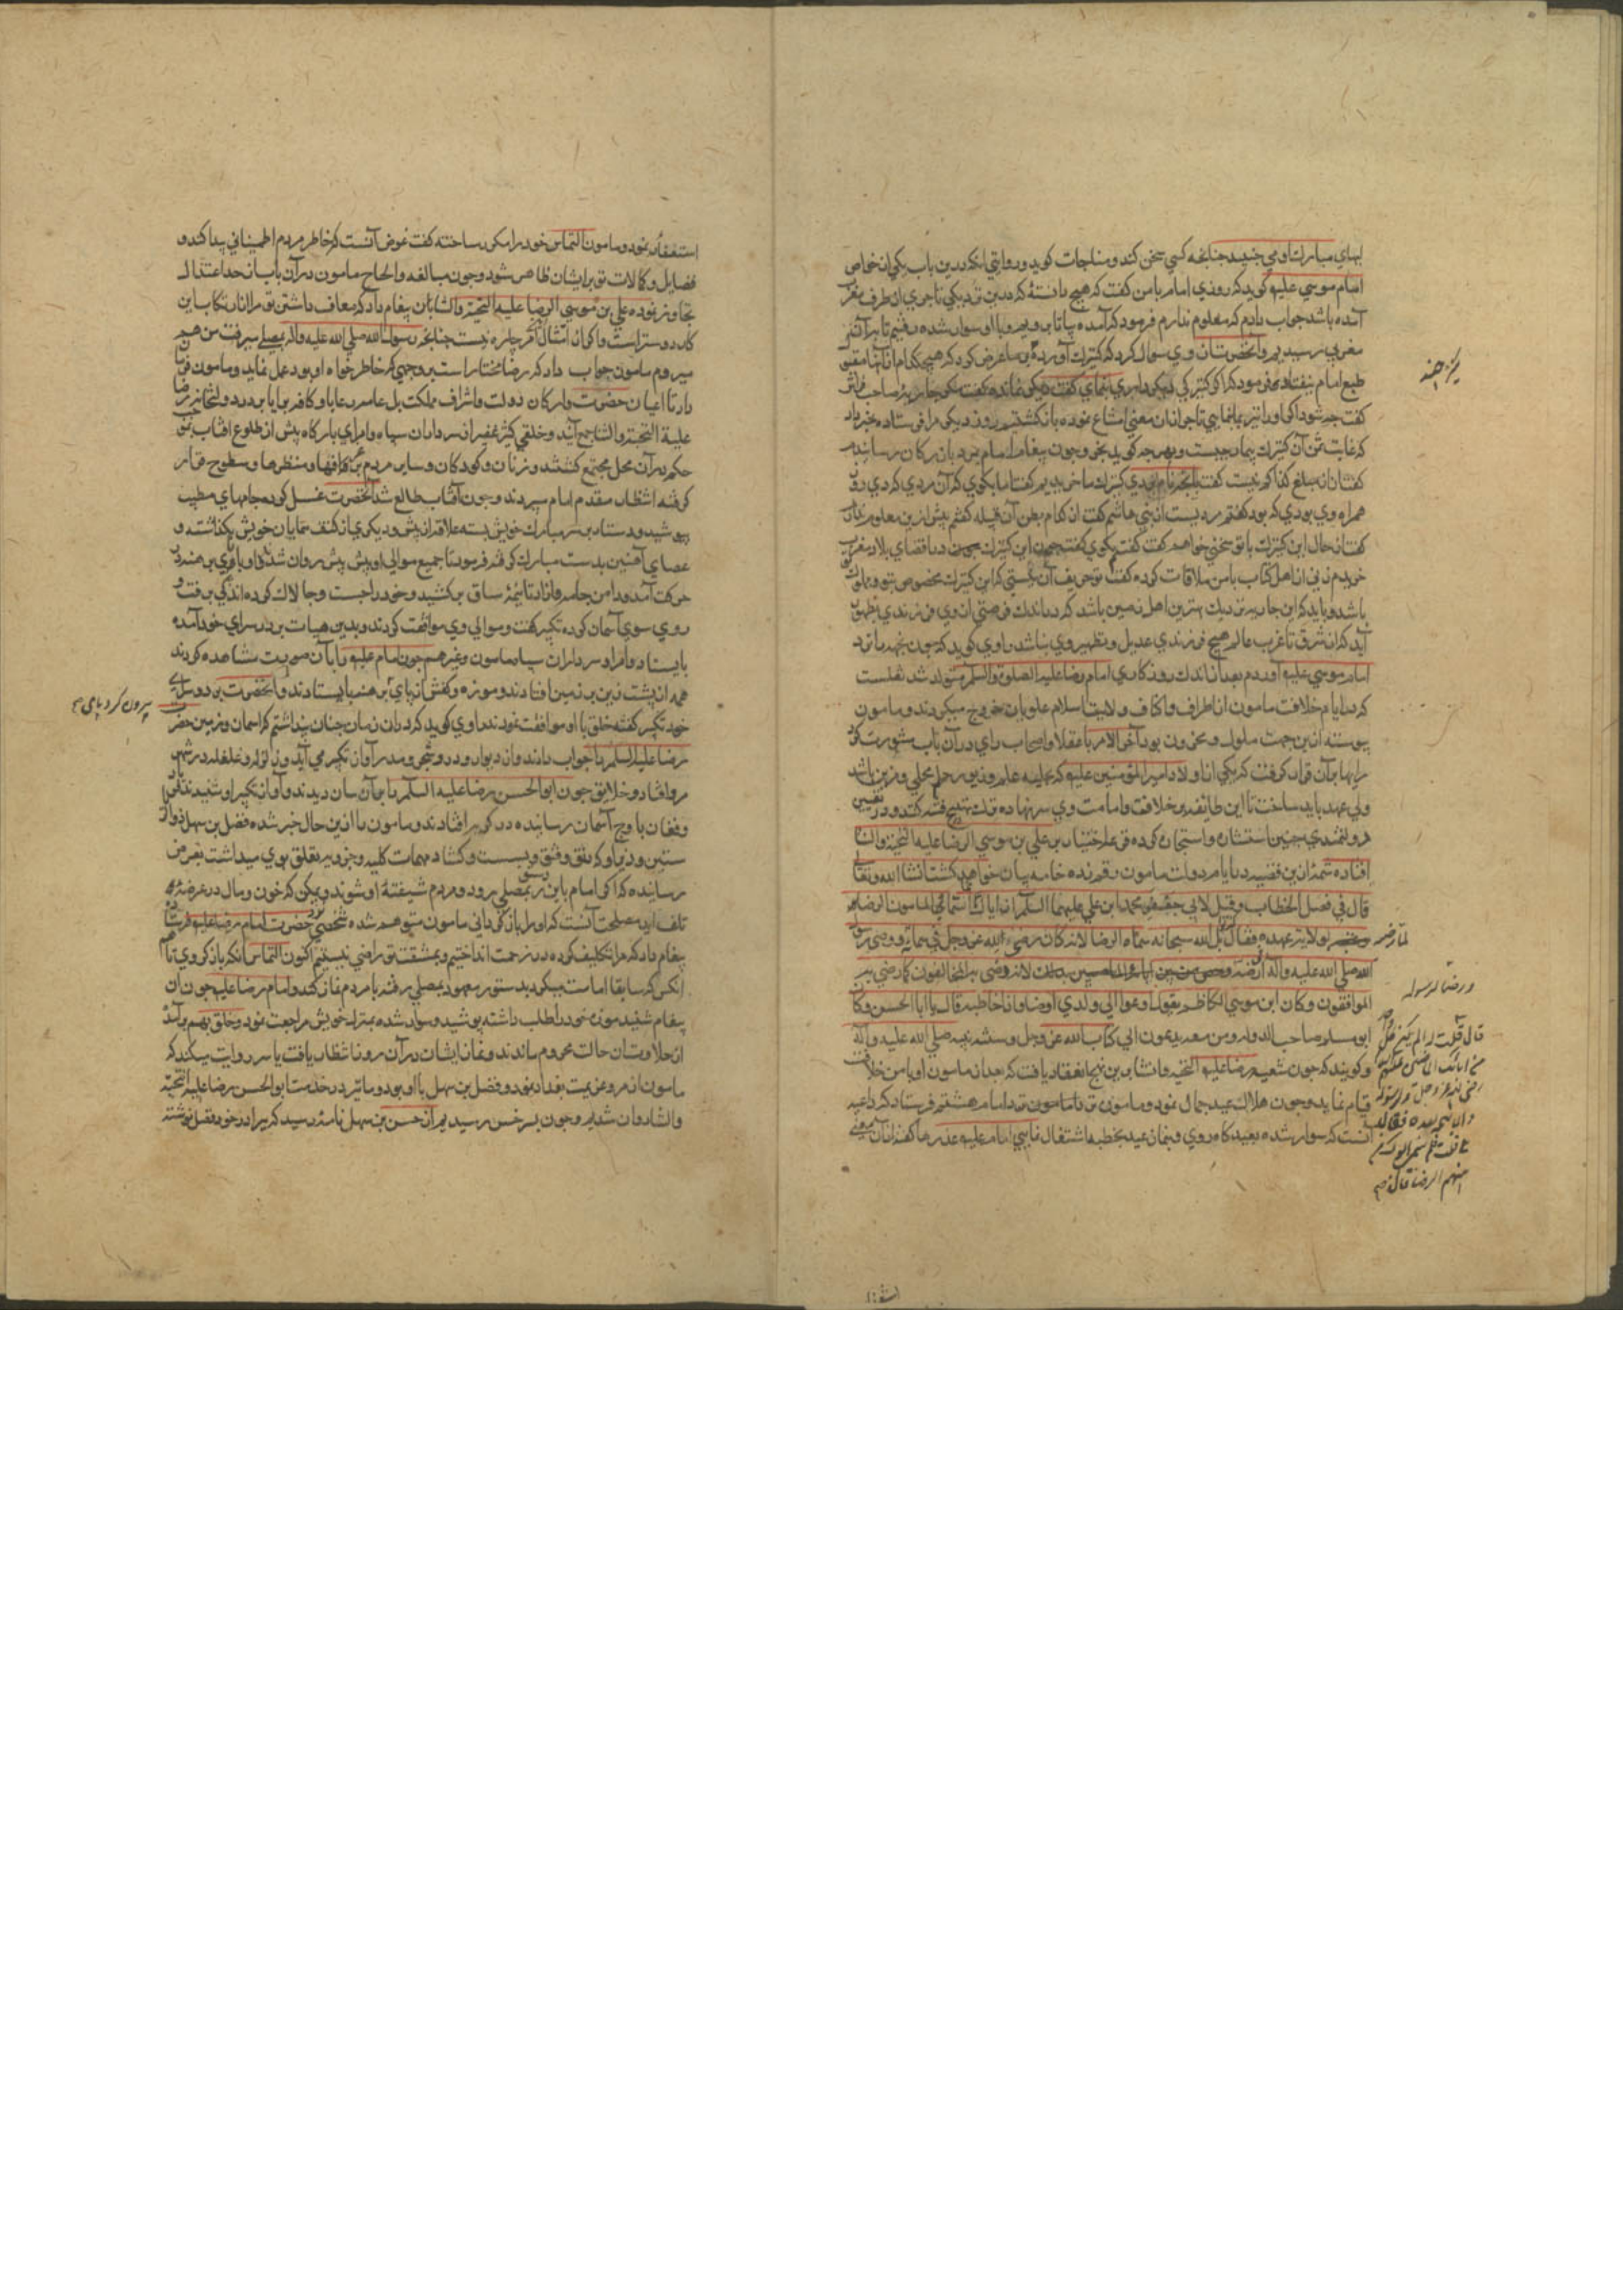 لبهای مبارك او می جنبید چنانچه کسی سخن کند و مناجات کوید و روایتی آنکه درین باب یکی از خواص
امام موسی علیه کوید که روزی امام بامن کفت که هیچ دانستهٔ که درین نزدیکی تاجری از طرف مغرب
آمده باشد جواب دادم که معلوم ندارم فرمود که آمده بیا تا برویم و با او سوار شده رفتیم تا بر آن
مغربی رسیدیم و آنحضرت از وی سوال کرد که کنیزك آوردهٔ بر ما عرض کرد که هیچکدام از آنها مقبول
طبع امام نیفتاد فرمود که اکر کنیزکی دیکر داری بنمای کفت دیکر نمانده
کفت چه شود اکر او را نیز بما نمایی تاجر از آن معنی امتناع نموده بازکشتیم روز دیکر مرا فرستاده
که غایت ثمن آن کنیزك بیمار چیست و بهر چه کوید بخر و چون پیغام امام بدو بازرکان رسانیدم
کفت از مبلغ کذا کم نیست کفتم کنیزك ما خریدیم کفت اما بکوی که آن مردی که دی روز
همراه وی بودی که بود کفتم مردیست از بنی هاشم کفت از کدام بطن آن قبیله کفتم بیش ازین معلوم ندارم
کفت از حال این کنیزك با تو سخنی خواهم کفت کفتم بکوی کفت چون این کنیزك در اقصای بلاد مغرب
خریدم زنی از اهل کتاب با من ملاقات کرده کفت
باشد و باید که این جاریه نزدیك بهترین اهل زمین باشد که در اندك فرصتی از وی فرزندی بظهور
آید که از شرق تا غرب عالم هیچ فرزندی عدیل و نظیر وی نباشد راوی کوید که چون نجمه را نزد
امام موسی علیه آوردم بعد از اندك روزکاری امام رضا علیه الصلوة والسلم متولد شد
که در ایام خلافت مامون از اطراف و اکناف ولایت اسلام علویان خروج میکردند و مامون
پیوسته ازین جهت ملول و محزون بود آخر الامر با عقلا و اصحاب رای در آن باب مشورت کرد
رایها بر آن قرار کرفت که یکی از اولاد امیرالمؤمنین علیه که بحلیه علم و زیور حلم محلی و مزین باشد
ولی عهد باید ساخت تا این طائفه بر خلافت و امامت وی سر نهاده ترك تهییج فتنه کنند و در تعیین
خردمندی چنین استشاره و استخاره کرده قرعه اختیار بر علی بن موسی الرضا علیه التحیة والثنا
افتاده شمهٔ ازین قضیه در ایام دولت مامون رقم زده خامه بیان خواهد کشت انشا الله تعالی
قال فی فصل الخطاب و قیل لابی جعفر محمد ابن علی علیهما السلم ان اباك انما سماه المامون الرضا
لما رضیه لولایة عهده فقال بل الله سبحانه سماه الرضا لانه کان رضی الله عز و جل فی سمائه و رضی رسول
الله صلی الله علیه واله فی ارضه و خص من بین آبائه الماضیین بذلك لانه رضی به المخالفون کما رضی به
الموافقون و کان ابن موسی الکاظم یقول ادعوا الی ولدی الرضا و اذا خاطبه قال یا ابا الحسن و کان
ابو مسلم صاحب الدوله و من معه یدعون الی کتاب الله عز و جل و سنة نبیه صلی الله علیه واله
و کویند که چون شعبه رضا علیه التحیه والثنا برین نهج انعقاد یافت که بعد از مامون او بامر خلافت
قیام نماید و چون هلال عید جمال نمود و مامون نزد امام هشتم فرستاد که داعیه
آنست که سوار شده بعیدکاه روی و بنماز عید بخطبه اشتغال نمایی امام علیه عذرها کفته از آن معنی
و رضا لرسوله
قال قلت له الم یکن کل
من ابائك الماضین علیهم
رضی لله عز و جل و لرسوله
والائمة بعده فقال بلی
فقلت فلم سمی ابوك من
بینهم الرضا قال
استعفا
استعفا نمود و مامون التماس خود را مکرر ساخته کفت غرض آنست که خاطر مردم اطمینانی پیدا کند و
فضایل و کمالات تو بر ایشان ظاهر شود و چون مبالغه و الحاح مامون در آن باب از حد اعتدال
تجاوز نموده علی بن موسی الرضا علیه التحیة والثنا بان پیغام داد که معاف داشتن تو مرا از ارتکاب این
کار دوستر است و اکر از امتثال امر چاره نیست چنانچه رسول الله صلی الله علیه واله بمصلی میرفت من هم
میروم مامون جواب داد که رضا مختار است بر وجهی که خاطر خواه او بود عمل نماید و مامون فرمان
داد تا اعیان حضرت و ارکان دولت و اشراف مملکت بل عامه رعایا و کافه برایا بر در دولتخانه رضا
علیة التحیة والثنا جمع آیند و خلقی کثیر غفیر از سرداران سپاه و امرای بارکاه پیش از طلوع افتاب بموجب
حکم در آن محل مجتمع کشتند و زنان و کودکان و سایر مردم بر بامها و منظرها و سطوح قرار
کرفته انتظار مقدم امام میبردند و چون آفتاب طالع شد آنحضرت غسل کرده جامهای مطیب
پوشید و دستار بر سر مبارك خویش بسته علاقه از پیش و دیکری از کتف همایان خویش بکذاشته و
عصای آهنین بدست مبارك کرفته فرمود تا جمیع موالی او پیش پیش روان شدند و او با پای برهنه در
حرکت آمد و دامن جامه و ازار تا نیمهٔ ساق برکشید و خود را چست و چالاك کرده اندکی برفت و
روی سوی آسمان کرده تکبیر کفت و موالی وی موافقت کردند و بدین هیات بر در سرای خود آمده
بایستاد و امرا و سرداران سپاه مامون و غیرهم چون امام علیه را بآن صورت مشاهده کردند
همه از پشت زین بر زمین افتادند و موزه و کفش از پای برهنه بایستادند و آنحضرت بر در سرای
بیرون کرد پای
خود تکبیر کفته خلق با او موافقت نمودند راوی کوید که در ان زمان چنان پنداشتم که اسمان و زمین حضرت
رضا علیه السلم را جواب دادند و از دیوار و در و شجر و مدر آواز تکبیر می آید و زلزله و غلغله در شهر
مرو افتاد و خلایق چون ابوالحسن رضا علیه السلم را بر آن سان دیدند و آواز تکبیر او شنیدند
و فغان باوج آسمان رسانیده در کریه افتادند و مامون را ازین حال خبر شده فضل بن سهل ذوالریا
ستین وزیر او که رتق و فتق و بست و کشاد مهمات کلیه و جزویه تعلق بوی میداشت بعرض
رسانیده که اکر امام باین نسق بمصلی رود مردم شیفتهٔ او شوند و یمکن که خون و مال در عرضهٔ
تلف آید مصلحت آنست که او را بازکردانی مامون متوهم شده شخصی نزد حضرت امام رضا علیه فرستاده
پیغام داد که مرا تکلیف کرده در زحمت انداختیم و بمشقت تو راضی نیستیم اکنون التماس آنکه بازکردی تا هم
آنکس که سابقا امامت میکرد بدستور معهود بمصلی رفته با مردم نماز کند و امام رضا علیه چون آن
پیغام شنید موزه خود را طلب داشته پوشید و سوار شده بمنزل خویش مراجعت نمود و خلق بهم برآمده
از حلاوت آن حالت محروم ماندند و نماز ایشان در آن روز انتظار یافت یاسر روایت میکند که
مامون از مرو عزیمت بغداد نمود و فضل بن سهل با او بود و ما نیز در خدمت ابوالحسن رضا علیه التحیة
والثنا روان شدیم و چون بسرخس رسیدیم از حسن بن سهل نامهٔ رسید که برادر خود فضل نوشته